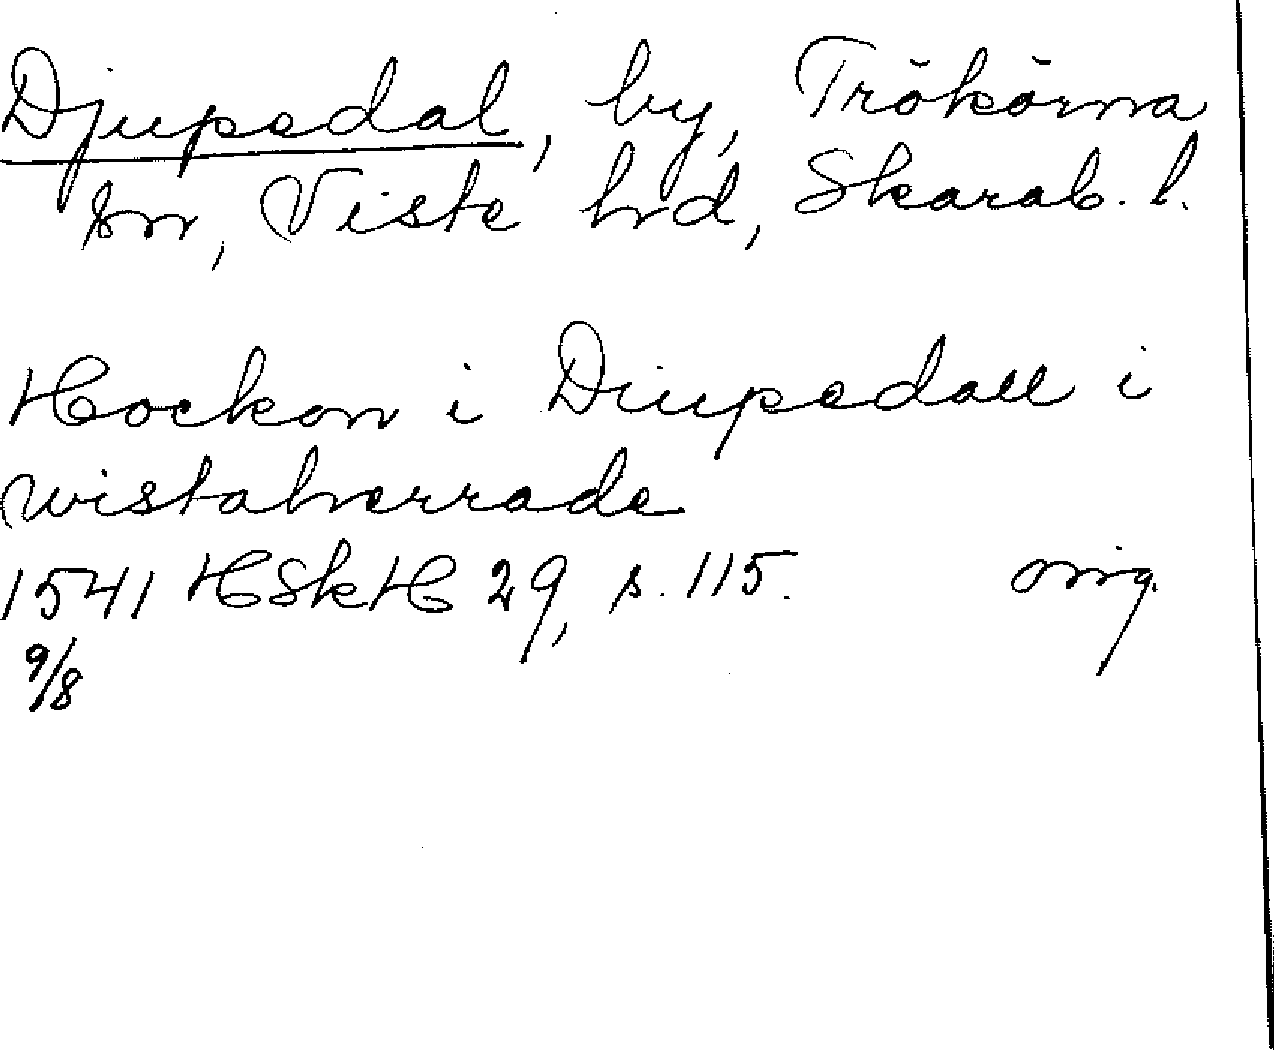 Djupedal, by, Trökörna
sn, Viste hrd, Skarab. l.
Hockon i Diupedall i
wistaherrade
1541 HSkH 29, s. 115. orig.
9/8